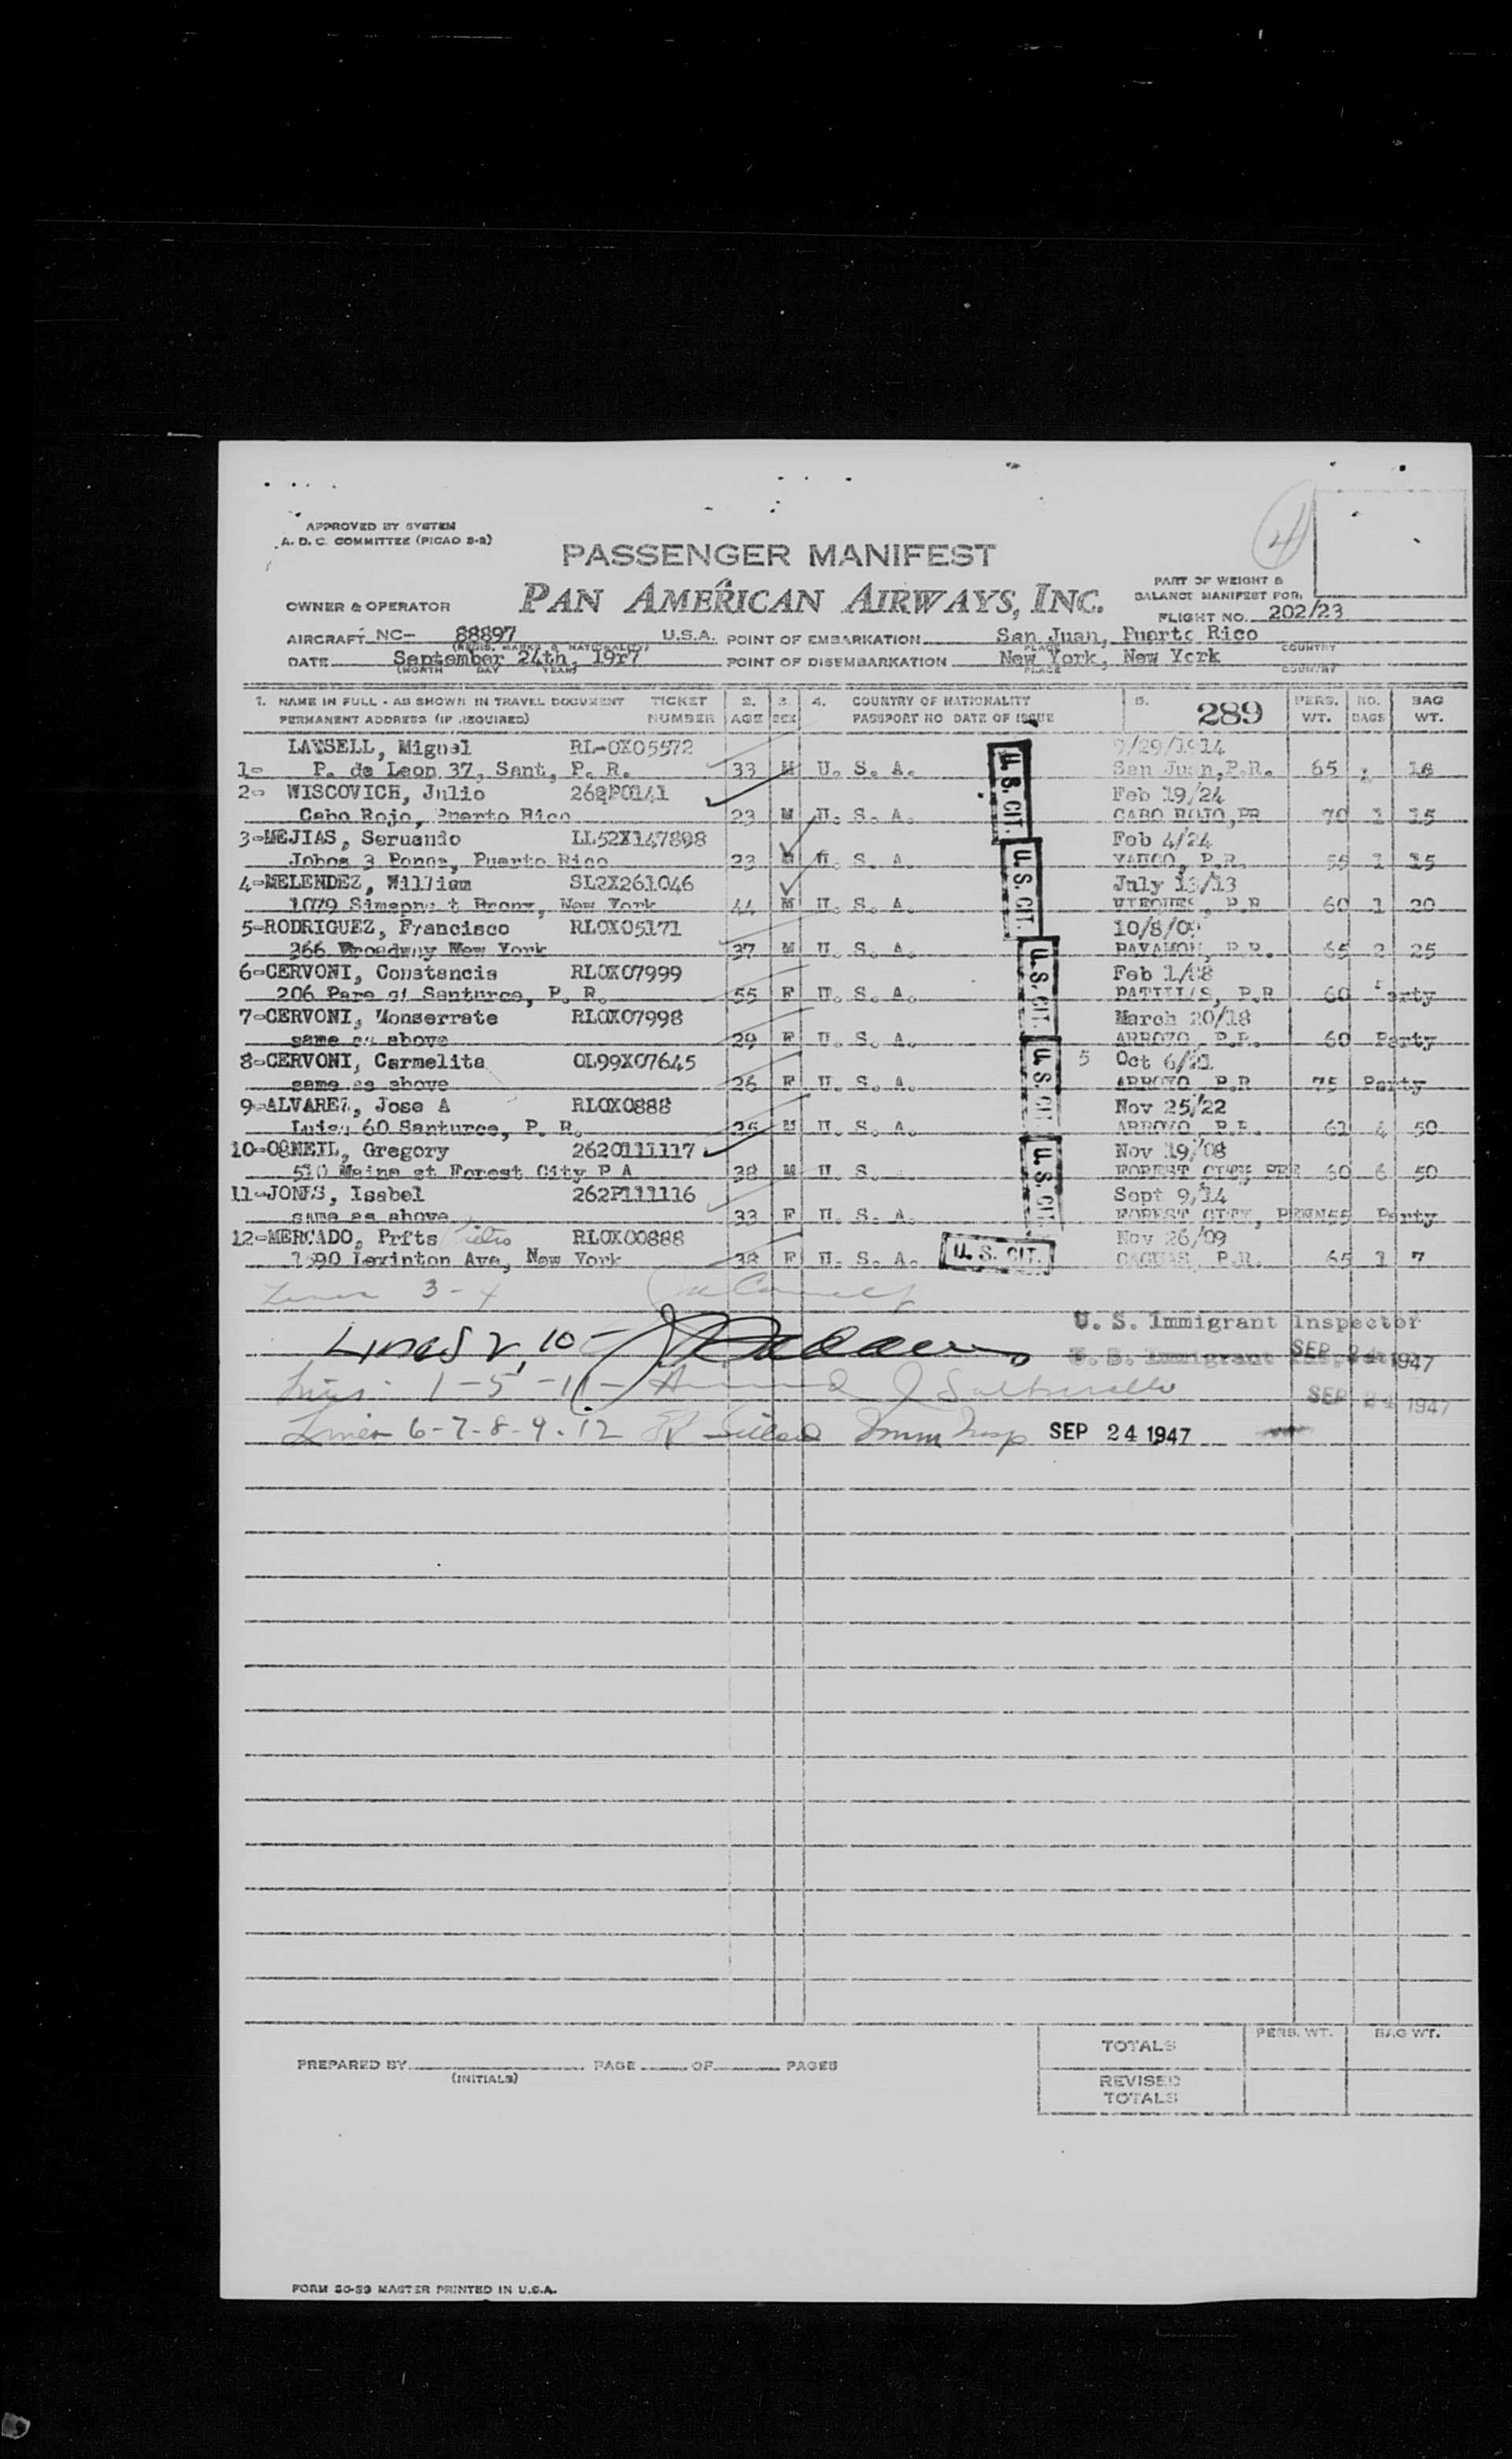 APPROVED BY SYSTEM
A. D. C. COMMITTEE (PICAO S-2)
4
PASSENGER MANIFEST
PAN AMERICAN AIRWAYS, INC.
OWNER & OPERATOR
PART OF WEIGHT &
BALANCE MANIFEST FOR:
FLIGHT NO. 202/23
AIRCRAFT NC- 88897 U.S.A. POINT OF EMBARKATION San Juan, Puerto Rico
(REGIS. MARKS & NATIONALITY) PLACE COUNTRY
DATE September 24th, 19r7 POINT OF DISEMBARKATION New York, New York
(MONTH DAY YEAR) PLACE COUNTRY
1. NAME IN FULL - AS SHOWN IN TRAVEL DOCUMENT TICKET 2. 3. 4. COUNTRY OF NATIONALITY 5. 289 PERS. NO. BAG
PERMANENT ADDRESS (IF REQUIRED) NUMBER AGE SEX PASSPORT NO DATE OF ISSUE WT. BAGS WT.
LAYSELL, Miguel RL-0X05572 9/29/1914
1- P. de Leon 37, Sant, P. R. 33 M U. S. A. San Juan, P.R. 65 1 18
2- WISCOVICH, Julio 262P0141 Feb 19/24
Cabo Rojo, Puerto Rico 23 M U. S. A. CABO ROJO, PR 70 1 15
3-MEJIAS, Servando LL52X147898 Feb 4/24
Jobos 3 Ponce, Puerto Rico 23 M U. S. A. YAUCO, P.R. 55 1 15
4-MELENDEZ, William SL2X261046 July 13/13
1079 Simpson t Bronx, New York 44 M U. S. A. VIEQUES, P.R 60 1 20
5-RODRIGUEZ, Francisco RLOX05171 10/8/09
366 Broadway New York 37 M U. S. A. BAYAMON, P.R. 65 2 25
6-CERVONI, Constancia RLOX07999 Feb 1/88
206 Parc st Santurce, P. R. 55 F U. S. A. PATILLAS, P.R 60 Party
7-CERVONI, Monserrate RLOX07998 March 20/18
same as above 29 F U. S. A. ARROYO, P.R. 60 Party
8-CERVONI, Carmelita OL99X07645 5 Oct 6/21
same as above 26 F U. S. A. ARROYO, P.R 75 Party
9-ALVAREZ, Jose A RLOX0888 Nov 25/22
Luisa 60 Santurce, P. R. 25 M U. S. A. ARROYO, P.R. 62 4 50
10-OÐNEIL, Gregory 2620111117 Nov 19/08
510 Maine st Forest City P A 38 M U. S. FOREST CITY, PEN 60 6 50
11-JONES, Isabel 262P111116 Sept 9/14
same as above 33 F U. S. A. FOREST CITY, PENN 55 Party
12-MERCADO, Prfts RLOX00888 Nov 26/09
1590 Lexinton Ave, New York 38 F U. S. A. CAGUAS, P.R. 65 1 7
U. S. CIT.
U. S. CIT.
U. S. CIT.
U. S. CIT.
U. S. CIT.
U. S. CIT.
Lines 3-4
U. S. Immigrant Inspector
Lines 2, 10 -
SEP 24 1947
U. S. Immigrant Inspector
Lines 1-5-11-
SEP 24 1947
Lines 6-7-8-9-12 Imm Insp SEP 24 1947
TOTALS PERS. WT. BAG WT.
PREPARED BY PAGE OF PAGES
(INITIALS)
REVISED
TOTALS
FORM 30-59 MASTER PRINTED IN U.S.A.